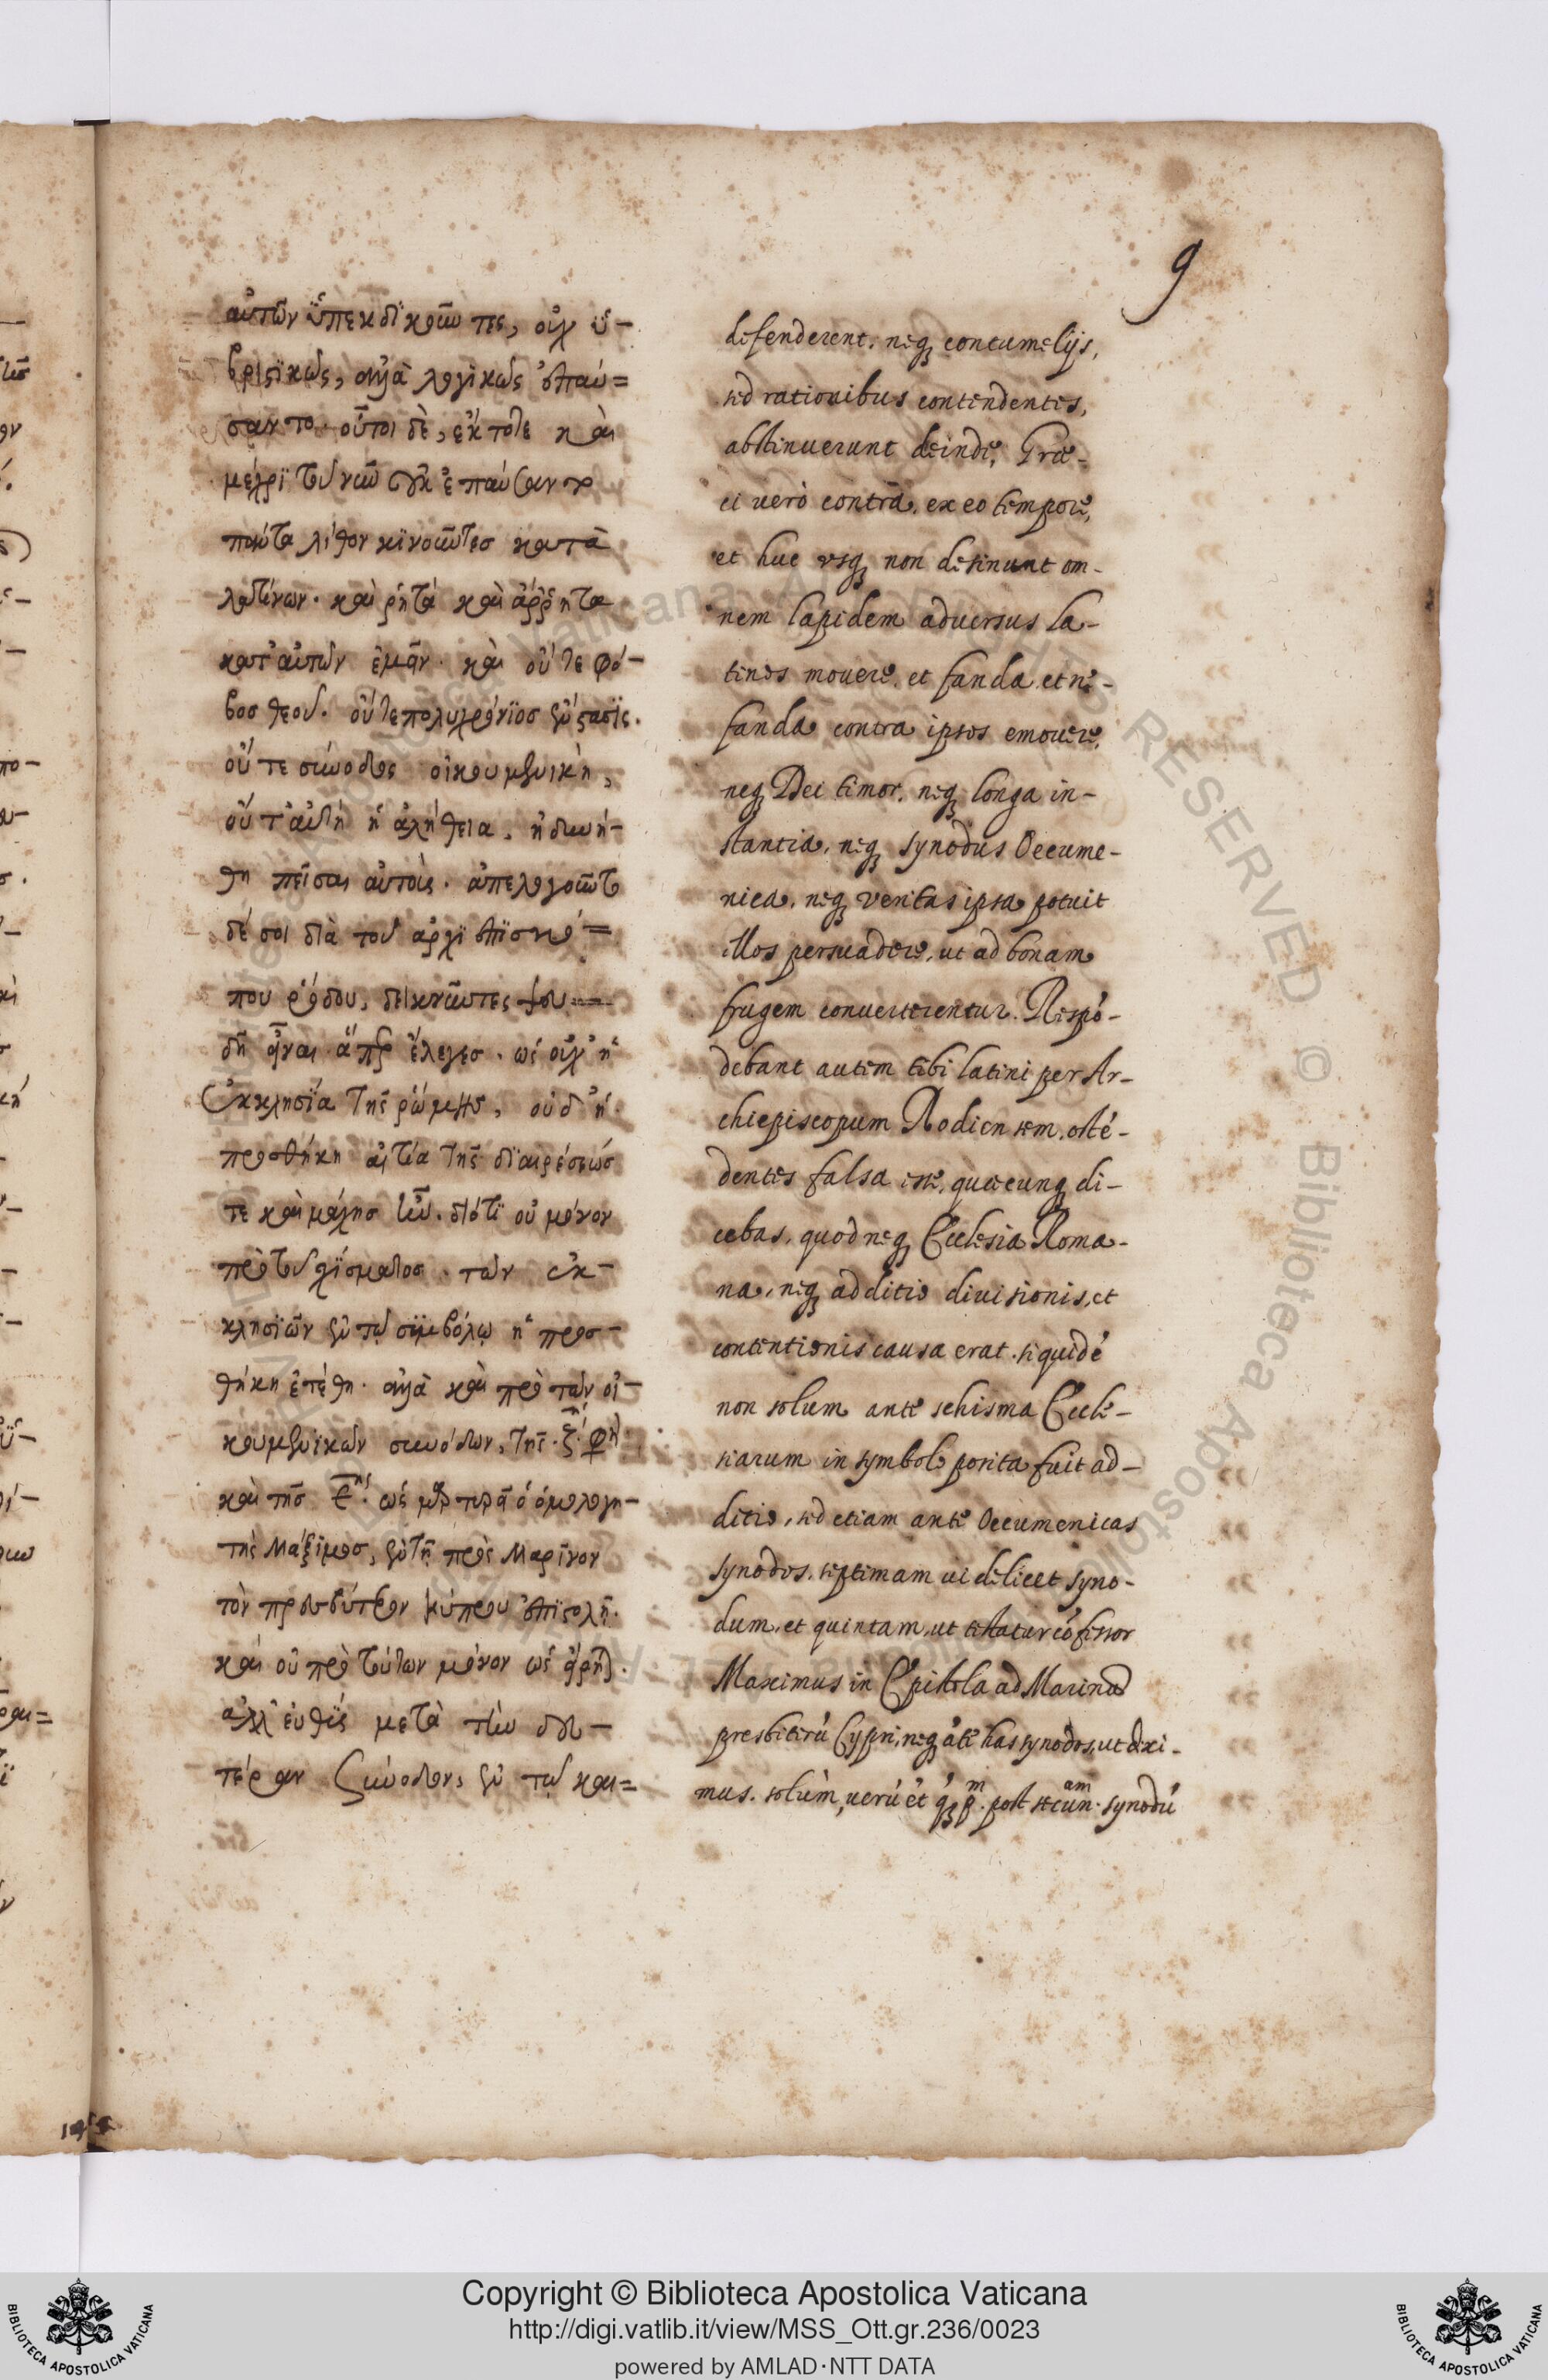 9
αὐτῶν ὑπεκδικοῦντες, οὐχ ὑ-
βριστικῶς, ἀλλὰ λογικῶς ἐπαύ=
σαντο. οὗτοι δὲ, ἔκτοτε καὶ
μέχρι τοῦ νῦν οὐκ ἐπαύσαντο
πάντα λίθον κινοῦντεσ κατὰ
λατίνων. καὶ ῥητὰ καὶ ἄρρητα
κατ' αὐτῶν ἐμᾶν. καὶ οὔτε φό-
βοσ θεοῦ. οὔτε πολυχρόνιοσ ἔνστασις.
οὔτε σύνοδος οἰκουμενικὴ,
οὔτ' αὐτὴ ἡ ἀλήθεια, ἠδυνή-
θη πεῖσαι αὐτοὺς. ἀπελογοῦντο
δέ σοι διὰ τοῦ ἀρχιεπισκό=
που ῥόδου, δεικνύντες ψευ=
δῆ εἶναι ἅπερ ἔλεγεσ. ὡς οὐχ' ἡ
ἐκκλησία τῆς ῥώμησ, οὐδ' ἡ
προσθήκη αἰτία τῆς διαιρέσεώσ
τε καὶ μάχησ ἦν. διότι οὐ μόνον
πρὸ τοῦ σχίσματοσ τῶν ἐκ-
κλησιῶν ἐν τῷ συμβόλῳ ἡ προσ-
θήκη ἐτέθη. ἀλλὰ καὶ πρὸ τῶν οἰ-
κουμενικῶν συνόδων, τῆς ζ.ης φημὶ
καὶ τῆσ ε.ης ὡς μαρτυρεῖ ὁ ὁμολογη-
τὴς Μάξιμοσ, ἐν τῇ πρὸς Μαρῖνον
τὸν πρεσβύτερον κύπρου ἐπιστολῇ.
καὶ οὐ πρὸ τούτων μόνον ὡς εἴρηται.
ἀλλ' εὐθὺς μετὰ τὴν δευ-
τέραν σύνοδον, ἐν τῷ και=
defenderent. neq; contumelijs,
sed rationibus contendentes,
abstinuerunt deinde, Græ-
ci uerò contra, ex eo tempore,
et huc usq; non desinunt om-
nem lapidem aduersus la-
tinos mouere, et fanda et ne-
fanda contra ipsos emouere,
neq; Dei timor, neq; longa in-
stantia, neq; synodus Oecume-
nica, neq; veritas ipsa potuit
illos persuadere, ut ad bonam
frugem conuerterentur. Respó-
debant autem tibi latini per Ar-
chiepiscopum Rodiensem, osté-
dentes falsa esse, quæcunq; di-
cebas, quod neq; Ecclesia Roma-
na, neq; additio diuisionis, et
contentionis causa erat. siquidé
non solum ante schisma Eccle-
siarum in symbolo posita fuit ad-
ditio, sed etiam ante Oecumenicas
synodos. septimam uidelicet syno-
dum, et quintam, ut testatur cófessor
Maximus in Epistola ad Marinū
presbiterú Cypri, neq; áte has synodos, ut dixi-
mus. solùm, uerú et post secun.am synodú